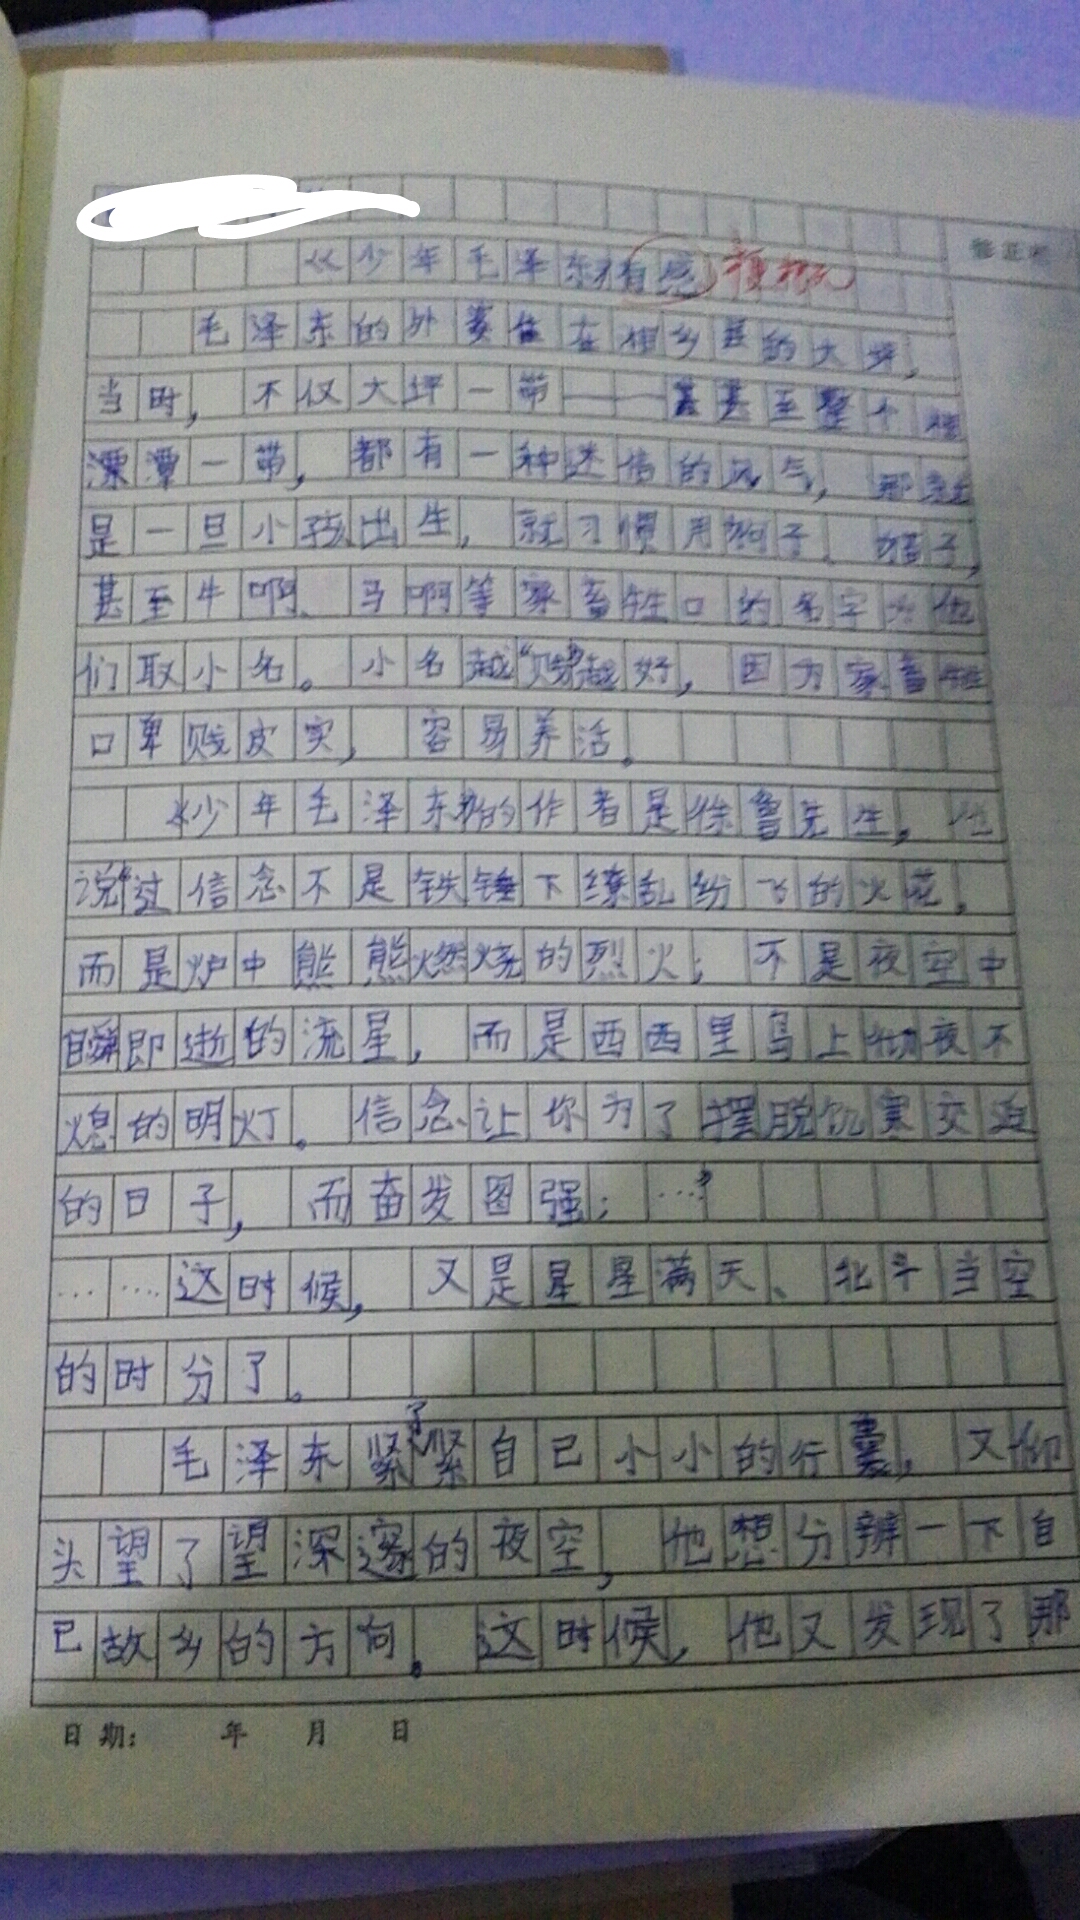 《少年毛泽东》有感
毛泽东的外家住在湘乡县的大坪，
当时，不仅大坪一带——甚至整个湘
潭一带，都有一种迷信的风气，那就
是一旦小孩出生，就习惯用狗子、猫子，
甚至牛啊、马啊等家畜牲口的名字为他
们取小名。小名越“贱”越好，因为家畜牲
口卑贱皮实，容易养活。
《少年毛泽东》的作者是徐鲁先生，他
说过“信念不是铁锤下缭乱纷飞的火花，
而是炉中熊熊燃烧的烈火；不是夜空中
瞬即逝的流星，而是西西里岛上彻夜不
熄的明灯。信念让你为了摆脱饥寒交迫
的日子，而奋发图强；…”
……这时候，又是星星满天、北斗当空
的时分了。
毛泽东紧了紧自己小小的行囊，又仰
头望了望深邃的夜空，他想分辨一下自
己故乡的方向。这时候，他又发现了那
日期： 年 月 日